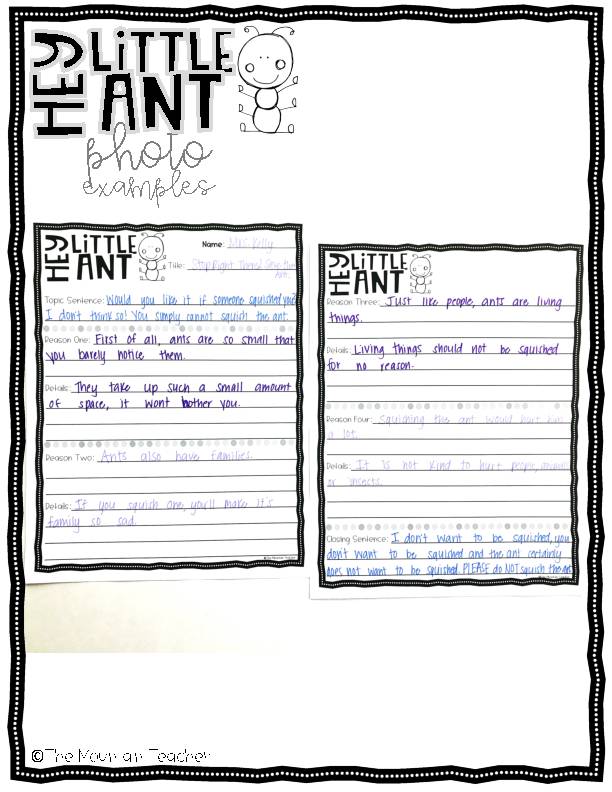 HEY LITTLE
ANT
photo
examples
HEY LITTLE
ANT
Name: Mrs. Kelly
Title: Stop Right There! Save the
Ant.
Topic Sentence: Would you like it if someone squished you?
I don't think so! You simply cannot squish the ant.
Reason One: First of all, ants are so small that
you barely notice them.
Details: They take up such a small amount
of space, it wont bother you.
Reason Two: Ants also have families.
Details: If you squish one, you'll make it's
family so sad.
©The Mountain Teacher
HEY LITTLE
ANT
Reason Three: Just like people, ants are living
things.
Details: Living things should not be squished
for no reason.
Reason Four: Squishing the ant would hurt him
a lot.
Details: It is not kind to hurt people, animals
or insects.
Closing Sentence: I don't want to be squished, you
don't want to be squished and the ant certainly
does not want to be squished. PLEASE do NOT squish the ant.
©The Mountain Teacher